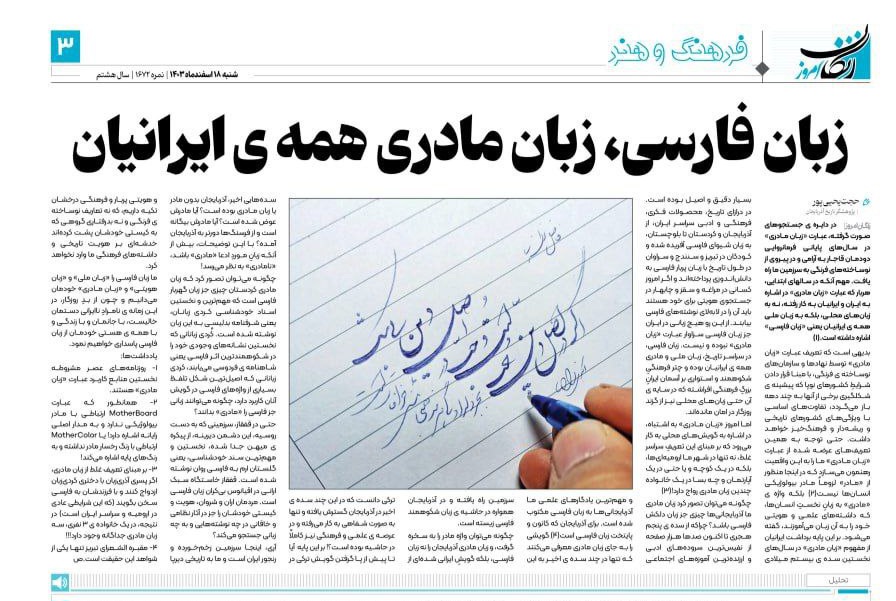 ۳
فرهنگ و هنر
امروز
شنبه ۱۸ اسفندماه ۱۴۰۳ | نمره ۱۶۷۲ | سال هشتم
زبان فارسی، زبان مادری همه ی ایرانیان
حجت یحیی پور
در دایره ی جستجوهای
صورت گرفته، عبارت «زبان مادری»
در سال‌های پایانی فرمانروایی
دودمان قاجار به آرامی و در پیروی از
نوساخته‌های فرنگی به سرزمین ما راه
یافت. مهم آنکه در سالهای ابتدایی،
هربار که عبارت «زبان مادری» در اشاره
به ایران و ایرانیان به کار رفته، نه به
زبان‌های محلی، بلکه به زبان ملی
همه ی ایرانیان یعنی «زبان فارسی»
اشاره داشته است.(۱)
بدیهی است که تعریف عبارت «زبان
مادری» توسط نهادها و سازمان‌های
نوساخته ی فرنگی، با مبنا قرار دادن
شرایط کشورهای نوپا که پیشینه ی
شکل‌گیری برخی از آنها به چند دهه
باز می‌گردد، تفاوت‌های اساسی
با ویژگی‌های کشورهای تاریخی
و ریشه‌دار و فرهنگ‌خیز خواهد
داشت. حتی توجه به همین
تعریف‌های عرضه شده از عبارت
«زبان مادری» ما را به این واقعیت
رهنمون می‌سازد که در اینجا منظور
از «مادر» لزوماً مادر بیولوژیکی
انسان‌ها نیست(۲) بلکه واژه ی
«مادری» به زبان نخست انسان‌ها،
که داشته‌های علمی و هویتی
خود را به آن زبان می‌آموزند، گفته
می‌شود. بر این پایه برداشت ایرانیان
از مفهوم «زبان مادری» در سال‌های
نخستین سده ی بیستم میلادی
بسیار دقیق و اصیل بوده است.
در درازای تاریخ، محصولات فکری،
فرهنگی و ادبی سراسر ایران، از
آذربایجان و کردستان تا بلوچستان،
به زبان شیوای فارسی آفریده شده و
کودکان در تبریز و سنندج و سراوان
در طول تاریخ با زبان پربار فارسی به
دانش‌اندوزی پرداخته‌اند و اگر امروز
کسانی در مراغه و سقز و چابهار در
جستجوی هویتی برای خود هستند
باید آن را در لابه‌لای نوشته‌های فارسی
بیابند. از این رو هیچ زبانی در ایران
جز زبان فارسی سزاوار عبارت «زبان
مادری» نبوده و نیست. زبان فارسی،
در سراسر تاریخ، زبان ملی و مادری
همه ی ایرانیان بوده و چتر فرهنگی
شکوهمند و استواری بر آسمان ایران
بزرگ فرهنگی افراشته که در سایه ی
آن حتی زبان‌های محلی نیز از گزند
روزگار در امان مانده‌اند.
اما امروز «زبان مادری» به اشتباه،
در اشاره به گویش‌های محلی به کار
می‌رود که بر مبنای این تعریفِ سراسر
غلط، نه تنها در شهر ما ارومیه‌ای‌ها،
بلکه در یک کوچه و یا حتی در یک
آپارتمان و چه بسا در یک خانواده
چندین زبان مادری رواج دارد!(۳)
چگونه می‌توان تصور کرد زبان مادری
ما آذربایجانی‌ها چیزی جز زبان دلکش
فارسی باشد؟ چراکه از سده ی پنجم
هجری تا اکنون صدها هزار صفحه
از نفیس‌ترین سروده‌های ادبی
و ارزنده‌ترین آموزه‌های اجتماعی
و مهم‌ترین یادگارهای علمی ما
آذربایجانی‌ها به زبان فارسی مکتوب
شده است. برای آذربایجان که کانون و
پایتخت زبان فارسی است(۴) گویشی
را به جای زبان مادری معرفی می‌کنند
که تنها در چند سده ی اخیر به این
سرزمین راه یافته و در آذربایجان
همواره در حاشیه ی زبان شکوهمند
فارسی زیسته است.
چگونه می‌توان واژه مادر را به سخره
گرفت، و زبان مادری آذربایجان را نه زبان
فارسی، بلکه گویش ایرانی شده‌ای از
ترکی دانست که در این چند سده ی
اخیر در آذربایجان گسترش یافته و تنها
به صورت شفاهی به کار می‌رفته و در
عرصه ی علمی و فرهنگی نیز کاملاً
در حاشیه بوده است؟! بر این پایه آیا
تا پیش از پا گرفتن گویش ترکی در
سده‌هایی اخیر، آذربایجان بدون مادر
یا زبان مادری بوده است؟ آیا مادرش
عوض شده است؟ آیا مادرش بیگانه
است و از فرسنگ‌ها دورتر به آذربایجان
آمده؟ با این توضیحات، بیش از
آنکه زبان مورد ادعا «مادری» باشد،
«نامادری» به نظر می‌رسد!
چگونه می‌توان تصور کرد که زبان
مادری کردستان چیزی جز زبان گهربار
فارسی است که مهم‌ترین و نخستین
اسناد خودشناسی کردی زبانان،
یعنی شرفنامه بدلیسی به این زبان
نوشته شده است. کردی زبانانی که
نخستین نشانه‌های وجودی خود را
در شکوهمندترین اثر فارسی یعنی
شاهنامه ی فردوسی می‌یابند. کردی
زبانانی که اصیل‌ترین شکل تلفظ
بسیاری از واژه‌های فارسی در گویش
آنان کاربرد دارد، چگونه می‌توانند زبانی
جز فارسی را «مادری» بدانند؟
حتی در قفقاز، سرزمینی که به دست
روسیه، این دشمن دیرینه، از پیکره
ی میهن جدا شده، نخستین و
مهم‌ترین سند خودشناسی، یعنی
گلستان ارم به فارسی روان نوشته
شده است. قفقاز خاستگاه سبک
ارانی در اقیانوس بی‌کران زبان فارسی
است. مردمان اران و شروان، هویت و
کیستی خودشان را جز در آثار نظامی
و خاقانی در چه نوشته‌هایی و به چه
زبانی جستجو می‌کند؟
آری، اینجا سرزمین زخم‌خورده و
رنجور ایران است و ما به تاریخی دیرپا
و هویتی پربار و فرهنگی درخشان
تکیه داریم، که نه تعاریف نوساخته
ی فرنگی و نه بدرفتاری گروهی که
به کیستی خودشان پشت کرده‌اند
خدشه‌ای بر هویت تاریخی و
داشته‌های فرهنگی ما وارد نخواهد
کرد.
ما زبان فارسی را «زبان ملی» و «زبان
هویتی» و «زبان مادری» خودمان
می‌دانیم و چون از بدِ روزگار، در
این زمانه ی نامراد ناایرانی دستمان
خالیست، با جانمان و با زندگی و
با همه ی هستی خودمان از زبان
فارسی پاسداری خواهیم نمود.
یادداشت‌ها:
۱- روزنامه‌های عصر مشروطه
نخستین منابع کاربرد عبارت «زبان
مادری» هستند.
۲- همانطور که عبارت
MotherBoard ارتباطی با مادر
بیولوژیکی ندارد و به مدار اصلی
رایانه اشاره دارد؛ یا MotherColor
ارتباطی با رنگ رخسار مادر نداشته و به
رنگ‌های پایه اشاره می‌کند!
۳- بر مبنای تعریف غلط از زبان مادری،
اگر پسری آذری‌زبان با دختری کردی‌زبان
ازدواج کنند و با فرزندشان به فارسی
سخن بگویند (که این شرایطی عادی
در ارومیه و سراسر ایران است) در
نتیجه، در یک خانواده ی ۳ نفری، سه
زبان مادری جداگانه وجود دارد!!!
۴- مقبره الشعرای تبریز تنها یکی از
شواهد این حقیقت است.ص
تحلیل